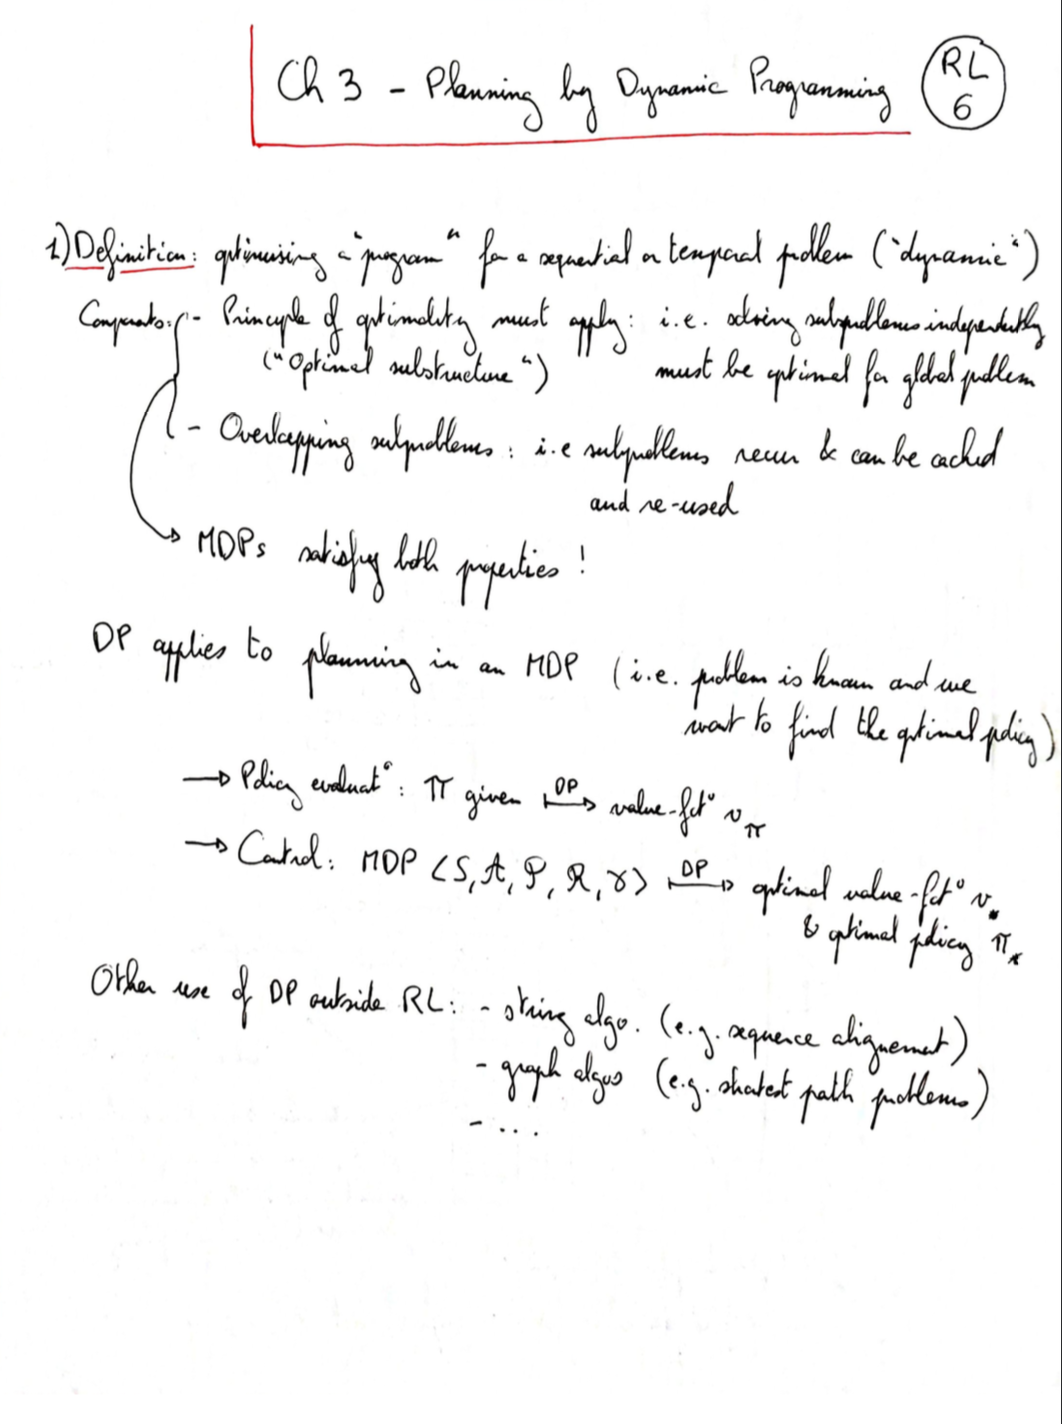 Ch 3 - Planning by Dynamic Programming
RL
6
1) Definition: optimising a "program" for a sequential or temporal problem ("dynamic")
Components: - Principle of optimality must apply: i.e. solving subproblems independently
("Optimal substructure") must be optimal for global problem
- Overlapping subproblems: i.e subproblems recur & can be cached
and re-used
→ MDPs satisfy both properties !
DP applies to planning in an MDP (i.e. problem is known and we
want to find the optimal policy)
→ Policy evaluat°: π given ↦DP value-fct° v_π
→ Control: MDP <S, A, P, R, γ> ↦DP optimal value-fct° v_*
& optimal policy π_*
Other use of DP outside RL: - string algo. (e.g. sequence alignement)
- graph algos (e.g. shortest path problems)
- ...